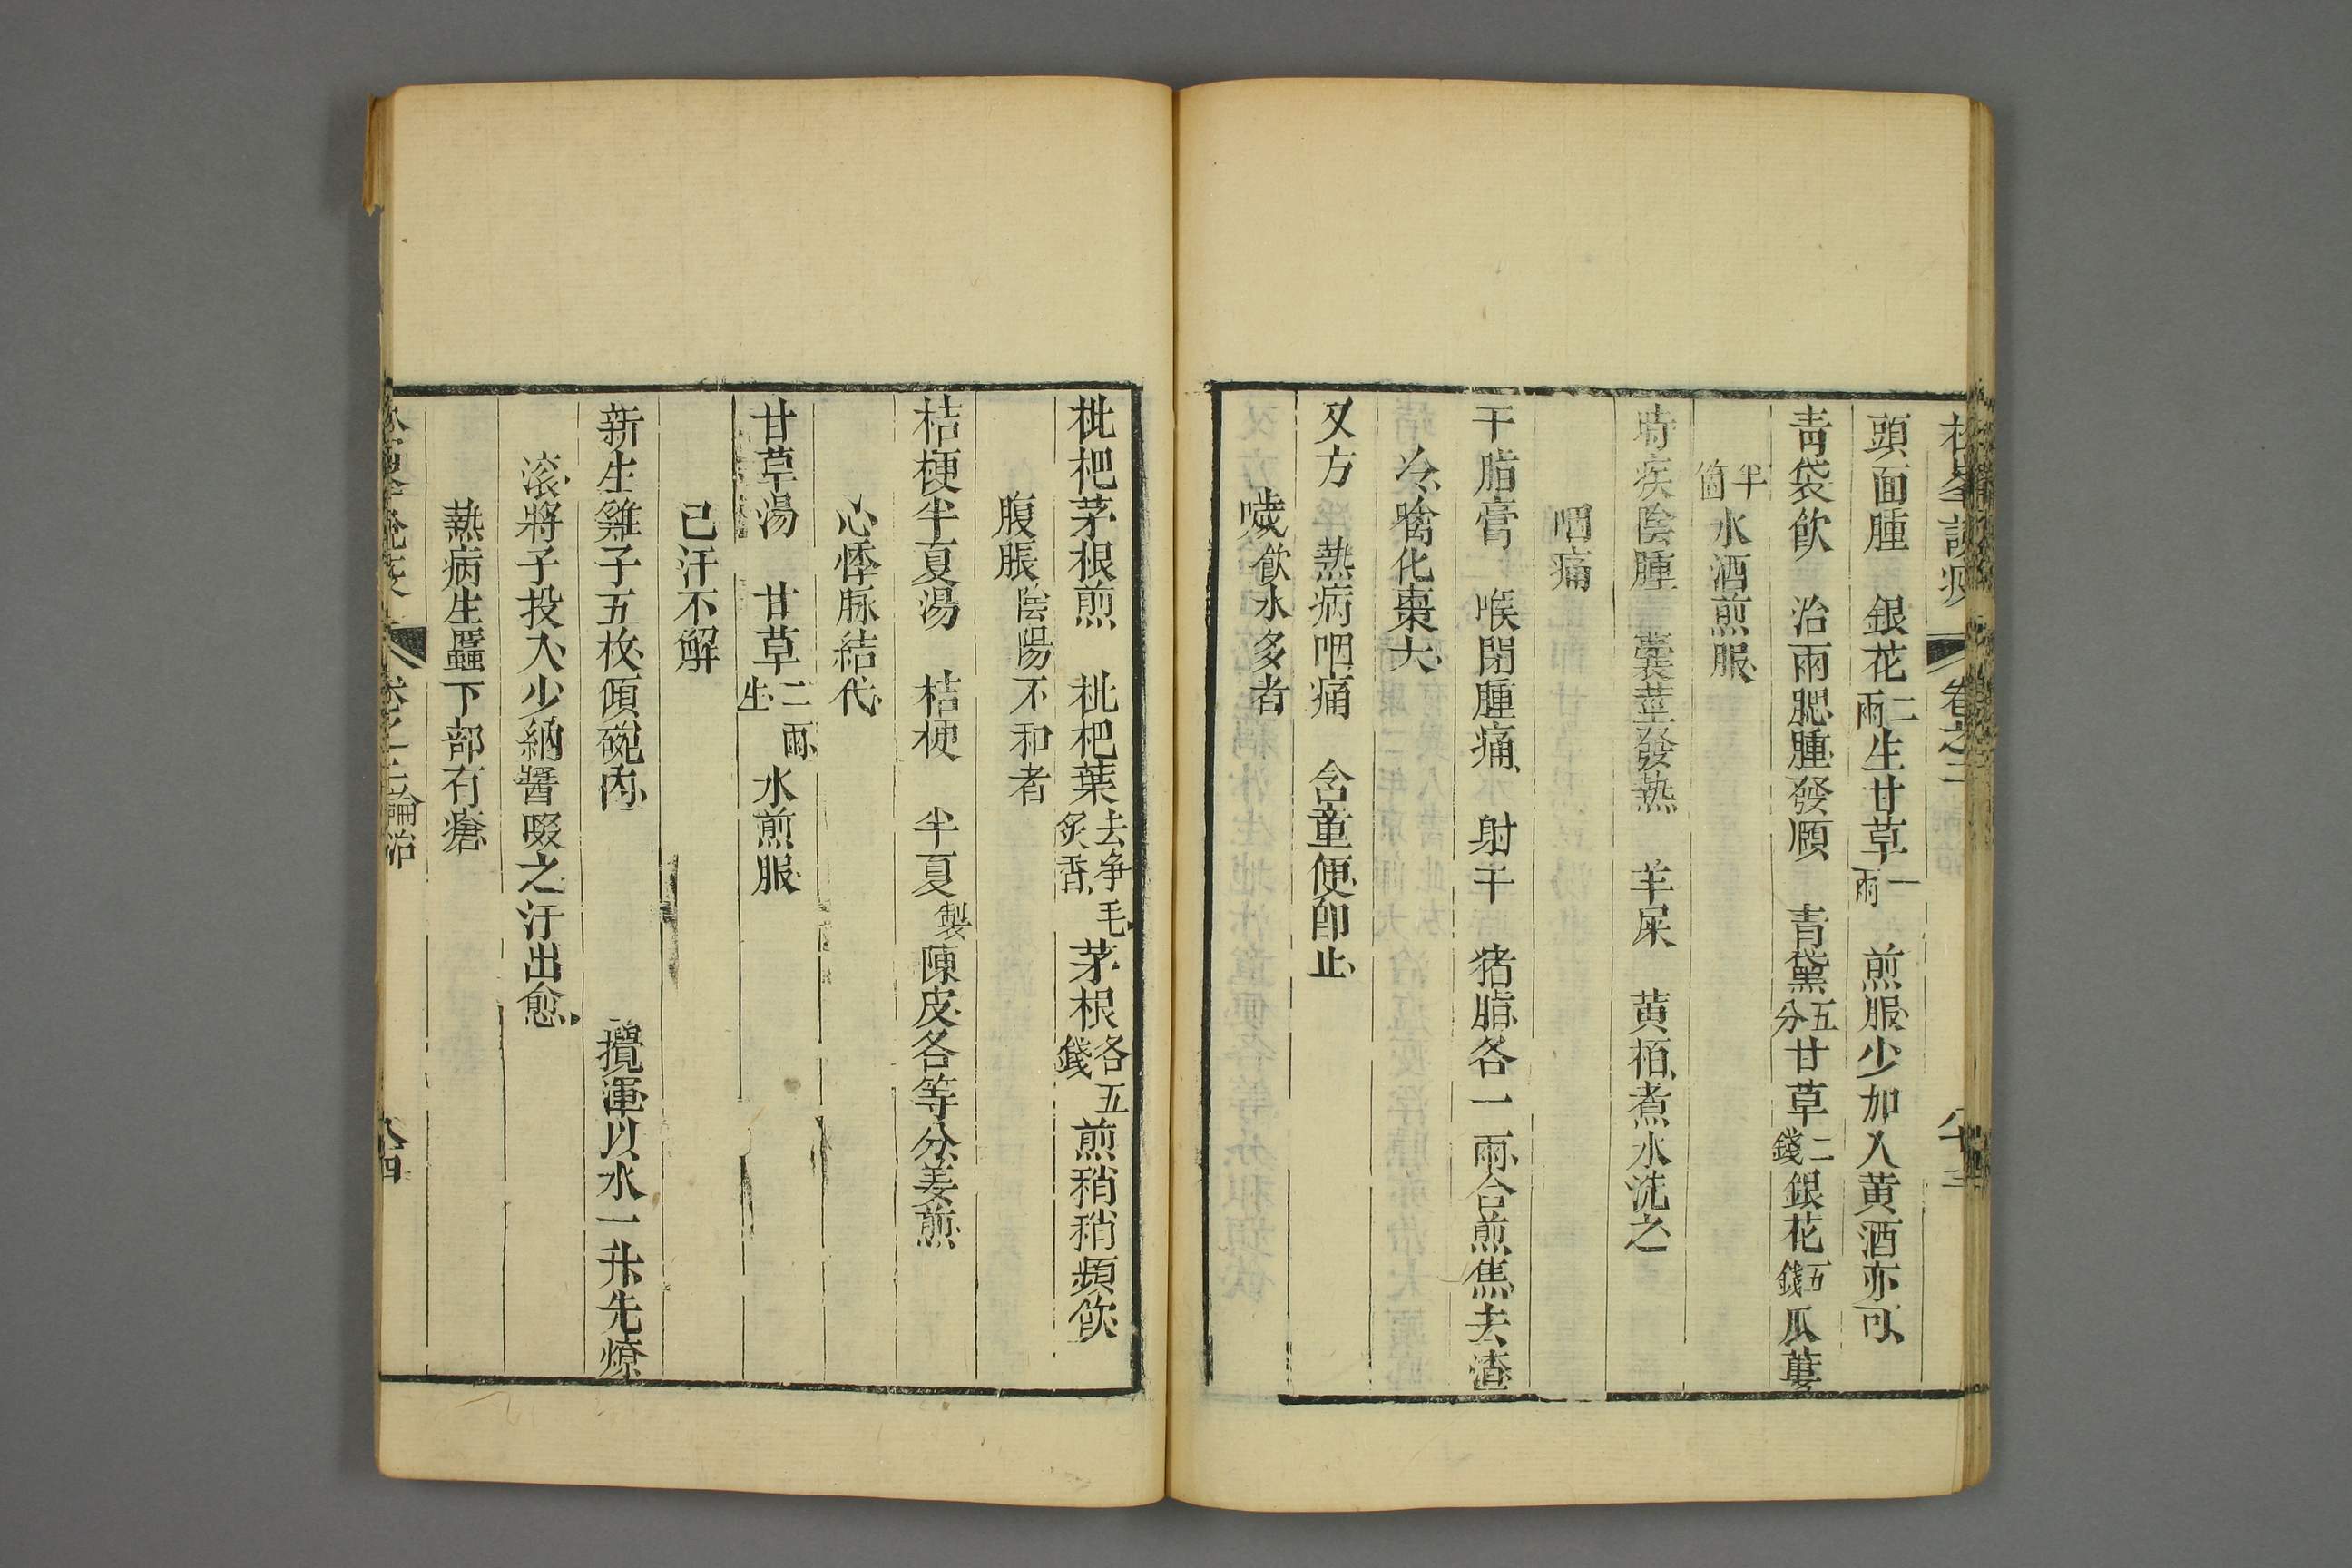 松峯說疫 卷之二 八十三
頭面腫 銀花二兩生甘草一兩 煎服少加入黄酒亦可
青袋飮 治兩腮腫發頤 青黛五分甘草二錢銀花五錢瓜蔞
半箇水酒煎服
時疾陰腫 囊莖發熱 羊屎 黄栢煮水洗之
咽痛
干脂膏 喉閉腫痛 射干 猪脂各一兩合煎焦去渣
冷噙化棗大
又方 熱病咽痛 含童便卽止
噦飮水多者
枇杷茅根煎 枇杷葉去净毛炙香茅根各五錢煎稍稍頻飮
腹脹陰陽不和者
桔梗半夏湯 桔梗 半夏製陳皮各等分姜煎
心悸脉結代
甘草湯 甘草二兩生水煎服
已汗不解
新生雞子五枚傾碗內 攪渾以水一升先燎
滚將子投入少納醬啜之汗出愈
熱病生䘌下部有瘡
松峯說疫 卷之二論治 八十四